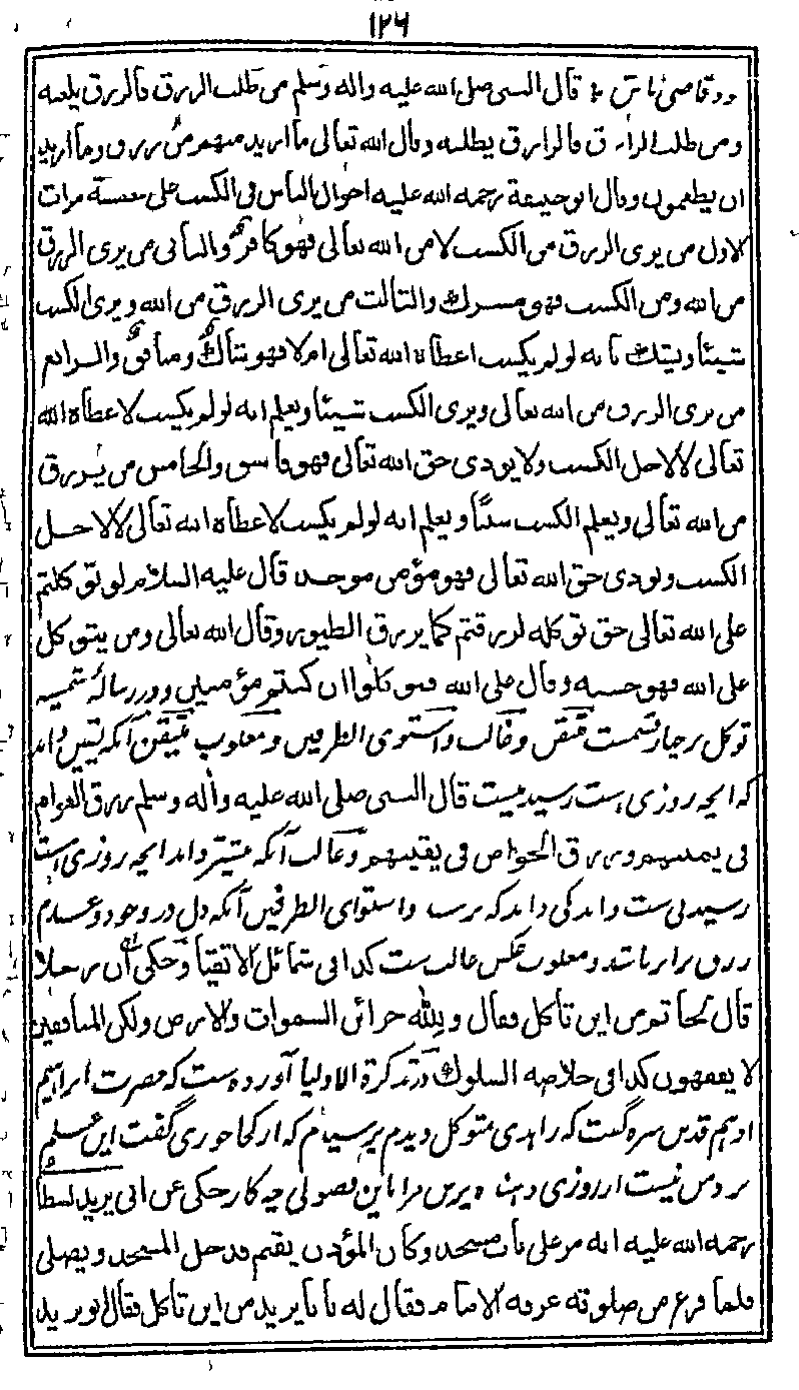 ۱۲۶
قال النبی صلی الله علیه واله وسلم من طلب الرزق فالرزق
ومن طلب الرازق فالرازق یطلبه وقال الله تعالی ما ارید منهم من رزق وما ارید
ان یطعمون وقال ابو حنیفة رحمه الله علیه احوال الناس فی الکسب علی خمسة مرات
الاول من یری الرزق من الکسب لا من الله تعالی فهو کافر والثانی من یری الرزق
من الله ومن الکسب فهو مشرک والثالث من یری الرزق من الله ویری الکسب
شیئا ویشک بانه لو لم یکسب اعطاه الله تعالی ام لا فهو شاک ومنافق والرابع
من یری الرزق من الله تعالی ویری الکسب شیئا ویعلم انه لو لم یکسب لاعطاه الله
تعالی لالاجل الکسب ولا یودی حق الله تعالی فهو فاسق والخامس من یرزق
من الله تعالی ویعلم الکسب سببا ویعلم انه لو لم یکسب لاعطاه الله تعالی لالاجل
الکسب ویودی حق الله تعالی فهو مؤمن موحد قال علیه السلام لو توکلتم
علی الله تعالی حق توکله لرزقتم کما یرزق الطیور وقال الله تعالی ومن یتوکل
علی الله فهو حسبه وقال علی الله فتوکلوا ان کنتم مؤمنین ودر رسالۀ شمسیه
توکل بر چهار قسمت متیقن وغالب واستوی الطرفین ومغلوب متیقن آنکه یقین داند
که انچه روزی است رسیدنیست قال النبی صلی الله علیه واله وسلم رزق العوام
فی یمینهم ورزق الخواص فی یقینهم وغالب آنکه بیشتر داند انچه روزی است
رسیدنی ست واندکی داند که نرسد واستوای الطرفین آنکه دل در وجود وعدم
رزق برابر باشد ومغلوب عکس غالب ست کذا فی شمائل الاتقیا وحکی ان رجلا
قال لحاتم من این تاکل فقال ولله خزائن السموات والارض ولکن المنافقین
لا یفقهون کذا فی خلاصة السلوک در تذکرة الاولیا آورده ست که حضرت ابراهیم
ادهم قدس سره گفت که زاهدی متوکل دیدم پرسیدم که از کجا خوری گفت این علم
نزد من نیست از روزی دهنده بپرس مرا باین فضولی چه کار حکی عن ابی یزید بسطا
رحمه الله علیه انه مر علی باب مسجد وکان المؤذن یقیم فدخل المسجد ویصلی
فلما فرغ من صلوته عرفه الامام فقال له یا بایزید من این تاکل فقال بویزید